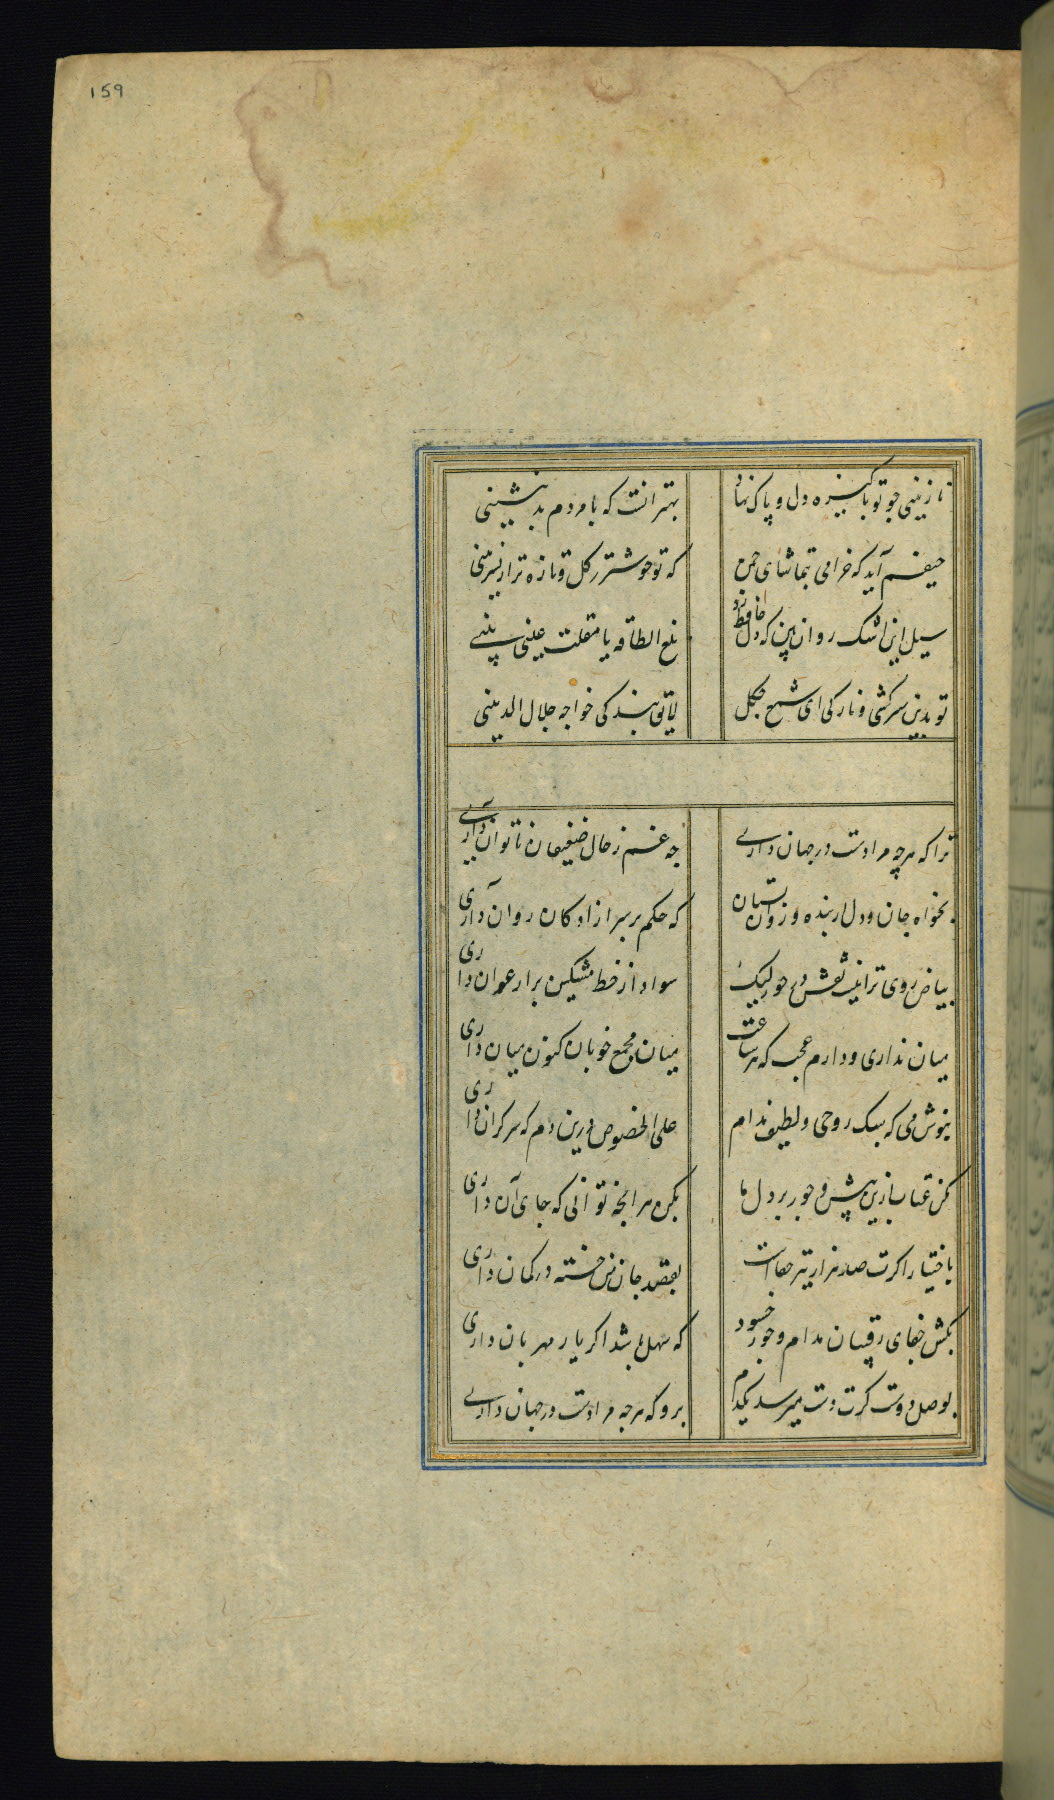 159
نازنینی چو تو پاکیزه دل و پاک نهاد
بهتر آنست که با مردم بد ننشینی
حیفم آید که خرامی بتماشای چمن
که تو خوشتر ز گل و تازه تر از نسرینی
سیل این اشک روان بین که دل حافظ برد
بلغ الطاقه یا مقلت عینی بینی
تو بدین سرکشی و نازکی ای شمع چکل
لایق بندگی خواجه جلال الدینی
ترا که هرچه مرادست در جهان داری
چه غم ز حال ضعیفان ناتوان داری
بخواه جان و دل از بنده و روان بستان
که حکم بر سر آزادگان روان داری
بیاض روی ترا نیست نقش در خور لیک
سواد از خط مشکین بر ارغوان داری
میان نداری و دارم عجب که هر ساعت
میان مجمع خوبان کنون میان داری
بنوش می که سبک روحی و لطیف مدام
علی الخصوص درین دم که سر گران داری
مکن عتاب ازین بیش و جور بر دل ما
بکن هر آنچه توانی که جای آن داری
باختیارا کرت صد هزار تیر جفاست
بقصد جان من خسته در کمان داری
بکش جفای رقیبان مدام و جور حسود
که سهل باشد اگر یار مهربان داری
بوصل دوست کرت دست میرسد یکدم
برو که هرچه مرادست در جهان داری